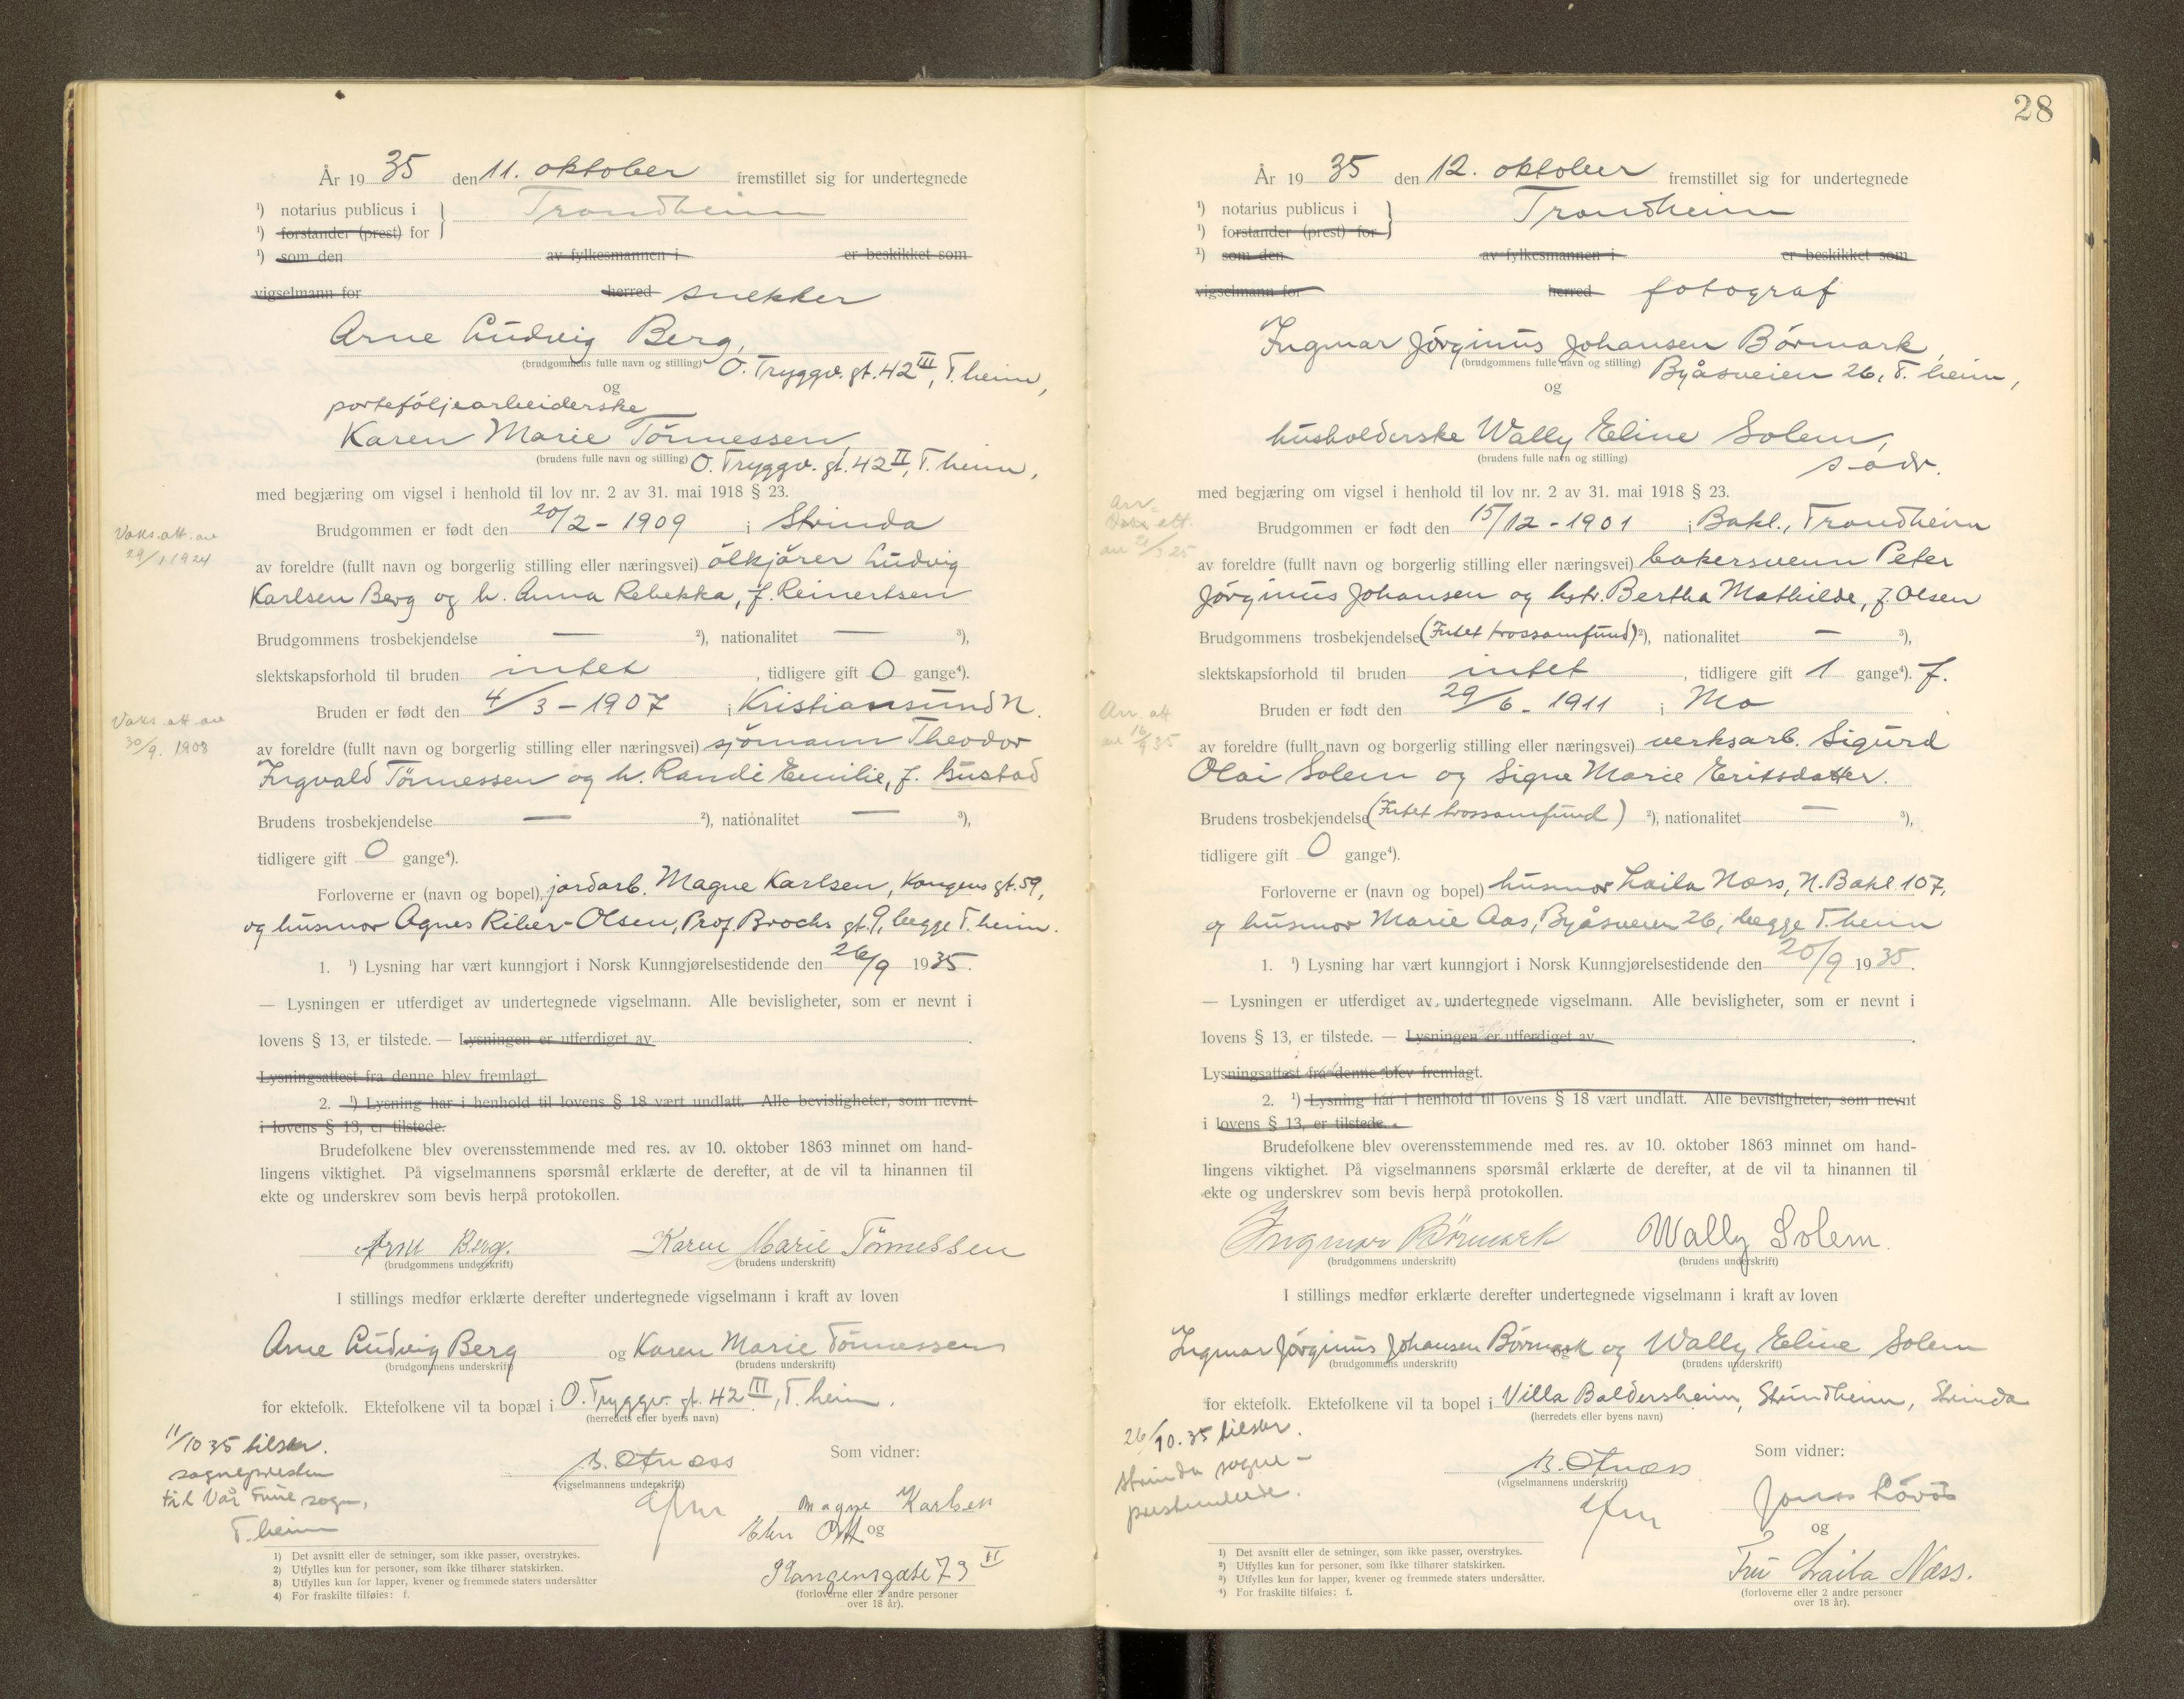 År 19 35 den 11. oktober fremstillet sig for undertegnede
¹) notarius publicus i Trondheim
¹) forstander (prest) for
¹) som den av fylkesmannen i er beskikket som
vigselmann for herred snekker
Arne Ludvig Berg,
(brudgommens fulle navn og stilling) O. Tryggv. gt. 42 III, T.heim,
og
porteföljearbeiderske
Karen Marie Tönnessen,
(brudens fulle navn og stilling) O. Tryggv. gt. 42 II, T.heim,
med begjæring om vigsel i henhold til lov nr. 2 av 31. mai 1918 § 23.
Vaks. att. av
29/1 1924
Brudgommen er født den 20/2 - 1909 i Strinda
av foreldre (fullt navn og borgerlig stilling eller næringsvei) ölkjörer Ludvig
Karlsen Berg og h. Anna Rebekka, f. Reinertsen
Brudgommens trosbekjendelse — ²), nationalitet — ³),
slektskapsforhold til bruden intet, tidligere gift 0 gange⁴).
Bruden er født den 4/3 - 1907 i Kristiansund N.
Vaks. att. av
30/9. 1908
av foreldre (fullt navn og borgerlig stilling eller næringsvei) sjömann Theodor
Ingvald Tönnessen og h. Randi Emilie, f. Bustad
Brudens trosbekjendelse — ²), nationalitet — ³),
tidligere gift 0 gange⁴).
Forloverne er (navn og bopel) jordarb. Magne Karlsen, Kongens gt. 59,
og husmor Agnes Riber-Olsen, Prof. Brochs gt. 9, begge T.heim.
1. ¹) Lysning har vært kunngjort i Norsk Kunngjørelsestidende den 26/9 1935.
— Lysningen er utferdiget av undertegnede vigselmann. Alle bevisligheter, som er nevnt i
lovens § 13, er tilstede. — Lysningen er utferdiget av
Lysningsattest fra denne blev fremlagt.
2. ¹) Lysning har i henhold til lovens § 18 vært undlatt. Alle bevisligheter, som nevnt
i lovens § 13, er tilstede.
Brudefolkene blev overensstemmende med res. av 10. oktober 1863 minnet om hand-
lingens viktighet. På vigselmannens spørsmål erklærte de derefter, at de vil ta hinannen til
ekte og underskrev som bevis herpå protokollen.
Arne Berg. Karen Marie Tönnessen
(brudgommens underskrift) (brudens underskrift)
I stillings medfør erklærte derefter undertegnede vigselmann i kraft av loven
Arne Ludvig Berg og Karen Marie Tönnessen
(brudgommens underskrift) (brudens underskrift)
for ektefolk. Ektefolkene vil ta bopæl i O. Tryggv. gt. 42 III, T.heim.
(herredets eller byens navn)
11/10 35 tilskr.
sognepresten
til Vår Frue sogn,
T.heim
Som vidner:
(vigselmannens underskrift)
Magne Karlsen
og
(forloverne eller 2 andre personer
over 18 år).
1) Det avsnitt eller de setninger, som ikke passer, overstrykes.
2) Utfylles kun for personer, som ikke tilhører statskirken.
3) Utfylles kun for lapper, kvener og fremmede staters undersåtter
4) For fraskilte tilføies: f.
28
År 19 35 den 12. oktober fremstillet sig for undertegnede
¹) notarius publicus i Trondheim
¹) forstander (prest) for
¹) som den av fylkesmannen i er beskikket som
vigselmann for herred fotograf
Ingmar Jörginus Johansen Börmark,
(brudgommens fulle navn og stilling) Byåsveien 26, T.heim,
og
husholderske Wally Eline Solem,
(brudens fulle navn og stilling) s. adr.
med begjæring om vigsel i henhold til lov nr. 2 av 31. mai 1918 § 23.
Brudgommen er født den 15/12 - 1901 i Bakl., Trondheim
av foreldre (fullt navn og borgerlig stilling eller næringsvei) bakersvenn Peter
Jörginus Johansen og hstr. Bertha Mathilde, f. Olsen
Brudgommens trosbekjendelse (Intet trossamfund) ²), nationalitet — ³),
slektskapsforhold til bruden intet, tidligere gift 1 gange⁴). f.
Bruden er født den 29/6 - 1911 i Mo
av foreldre (fullt navn og borgerlig stilling eller næringsvei) verksarb. Sigurd
Olai Solem og Signe Marie Eriksdatter.
Brudens trosbekjendelse (Intet trossamfund) ²), nationalitet — ³),
tidligere gift 0 gange⁴).
Forloverne er (navn og bopel) husmor Laila Næss, N. Bakl. 107,
og husmor Marie Aas, Byåsveien 26, begge T.heim
1. ¹) Lysning har vært kunngjort i Norsk Kunngjørelsestidende den 20/9 1935.
— Lysningen er utferdiget av undertegnede vigselmann. Alle bevisligheter, som er nevnt i
lovens § 13, er tilstede. — Lysningen er utferdiget av
Lysningsattest fra denne blev fremlagt.
2. ¹) Lysning har i henhold til lovens § 18 vært undlatt. Alle bevisligheter, som nevnt
i lovens § 13, er tilstede.
Brudefolkene blev overensstemmende med res. av 10. oktober 1863 minnet om hand-
lingens viktighet. På vigselmannens spørsmål erklærte de derefter, at de vil ta hinannen til
ekte og underskrev som bevis herpå protokollen.
Ingmar Börmark Wally Solem.
(brudgommens underskrift) (brudens underskrift)
I stillings medfør erklærte derefter undertegnede vigselmann i kraft av loven
Ingmar Jörginus Johansen Börmark og Wally Eline Solem
(brudgommens underskrift) (brudens underskrift)
for ektefolk. Ektefolkene vil ta bopel i Villa Baldersheim, Strindheim, Strinda
(herredets eller byens navn)
26/10. 35 tilskr.
Strinda sogne-
prestembede.
Som vidner:
(vigselmannens underskrift)
og
Fru Laila Næss.
(forloverne eller 2 andre personer
over 18 år).
¹) Det avsnitt eller de setninger, som ikke passer, overstrykes.
²) Utfylles kun for personer, som ikke tilhører statskirken.
³) Utfylles kun for lapper, kvener og fremmede staters undersåtter.
⁴) For fraskilte tilføies: f.